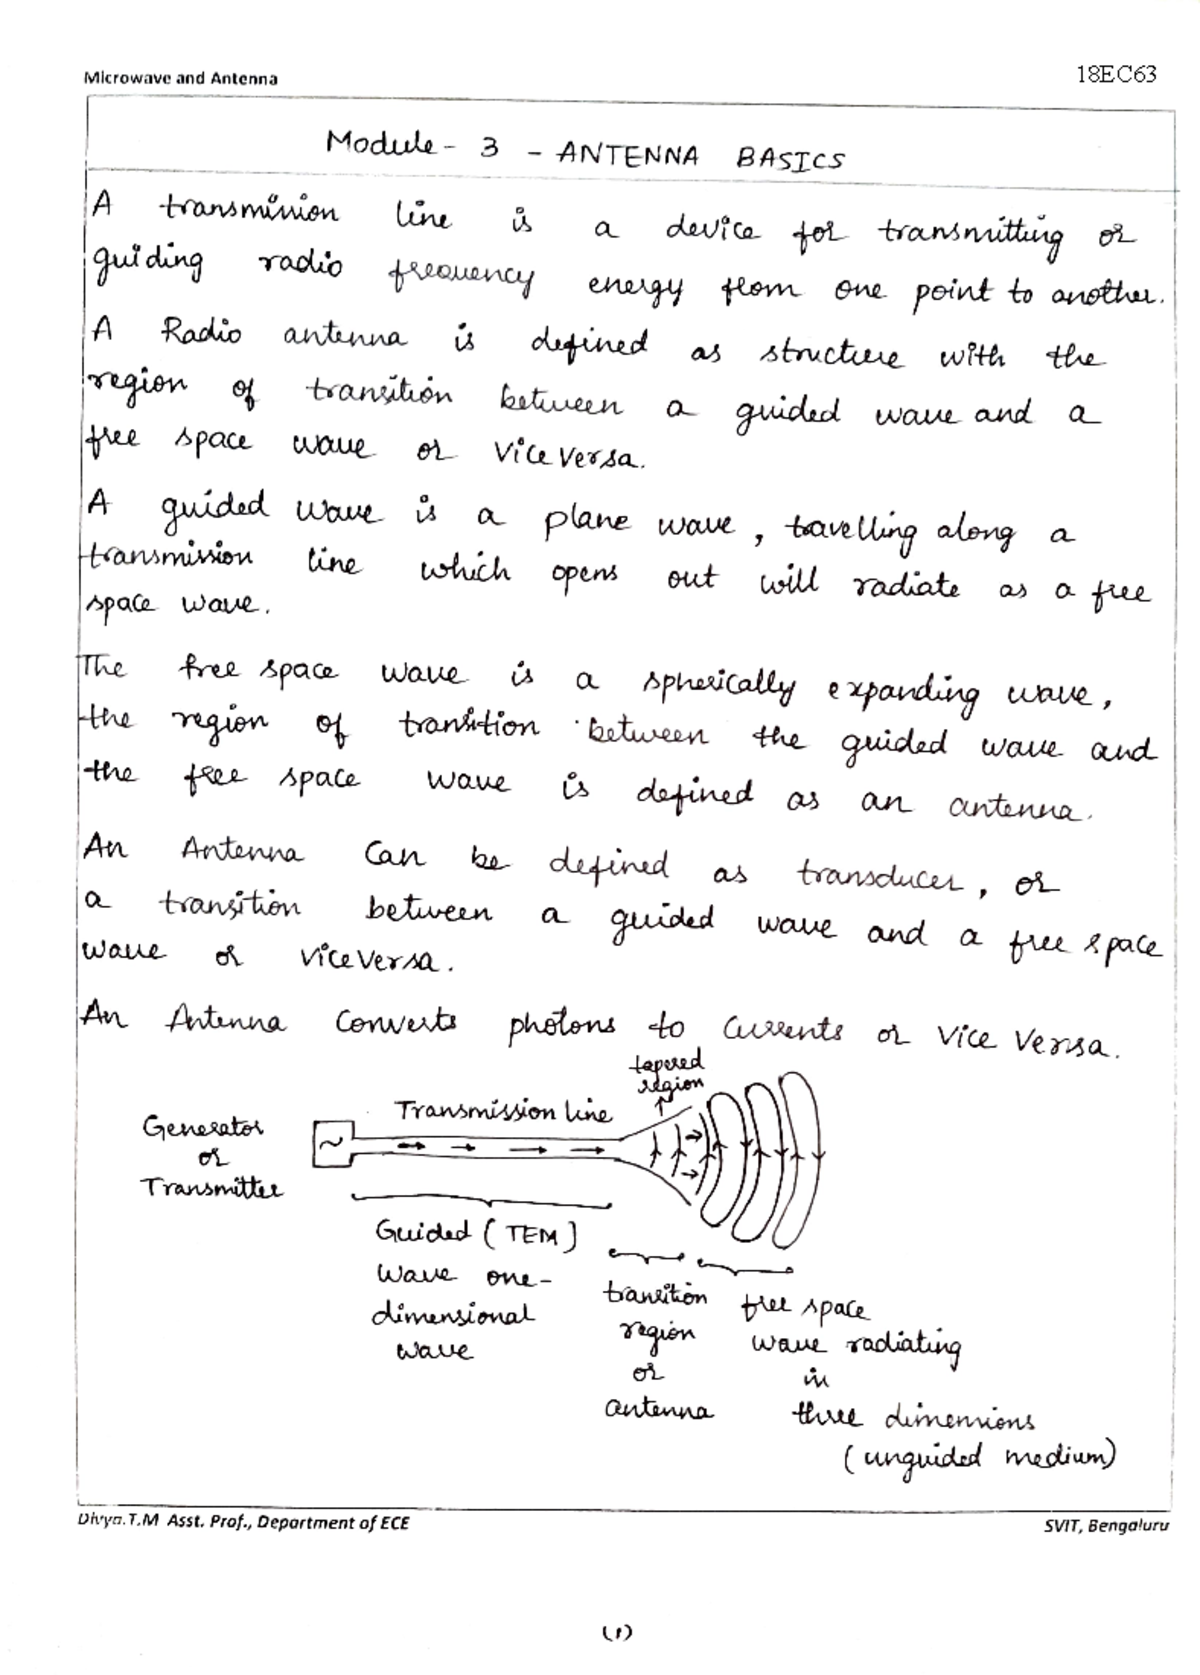 Microwave and Antenna
18EC63
Module - 3 - ANTENNA BASICS
A transmission line is a device for transmitting or
guiding radio frequency energy from one point to another.
A Radio antenna is defined as structure with the
region of transition between a guided wave and a
free space wave or Vice Versa.
A guided wave is a plane wave, travelling along a
transmission line which opens out will radiate as a free
space wave.
The free space wave is a spherically expanding wave,
the region of transition between the guided wave and
the free space wave is defined as an antenna.
An Antenna Can be defined as transducer, or
a transition between a guided wave and a free space
wave or ViceVersa.
An Antenna Converts photons to Currents or Vice Versa.
tapered
region
Transmission line
Generator
or
Transmitter
~
Guided (TEM)
Wave one-
dimensional
wave
transition
region
or
antenna
free space
wave radiating
in
three dimensions
(unguided medium)
Divya.T.M Asst. Prof., Department of ECE
SVIT, Bengaluru
(1)